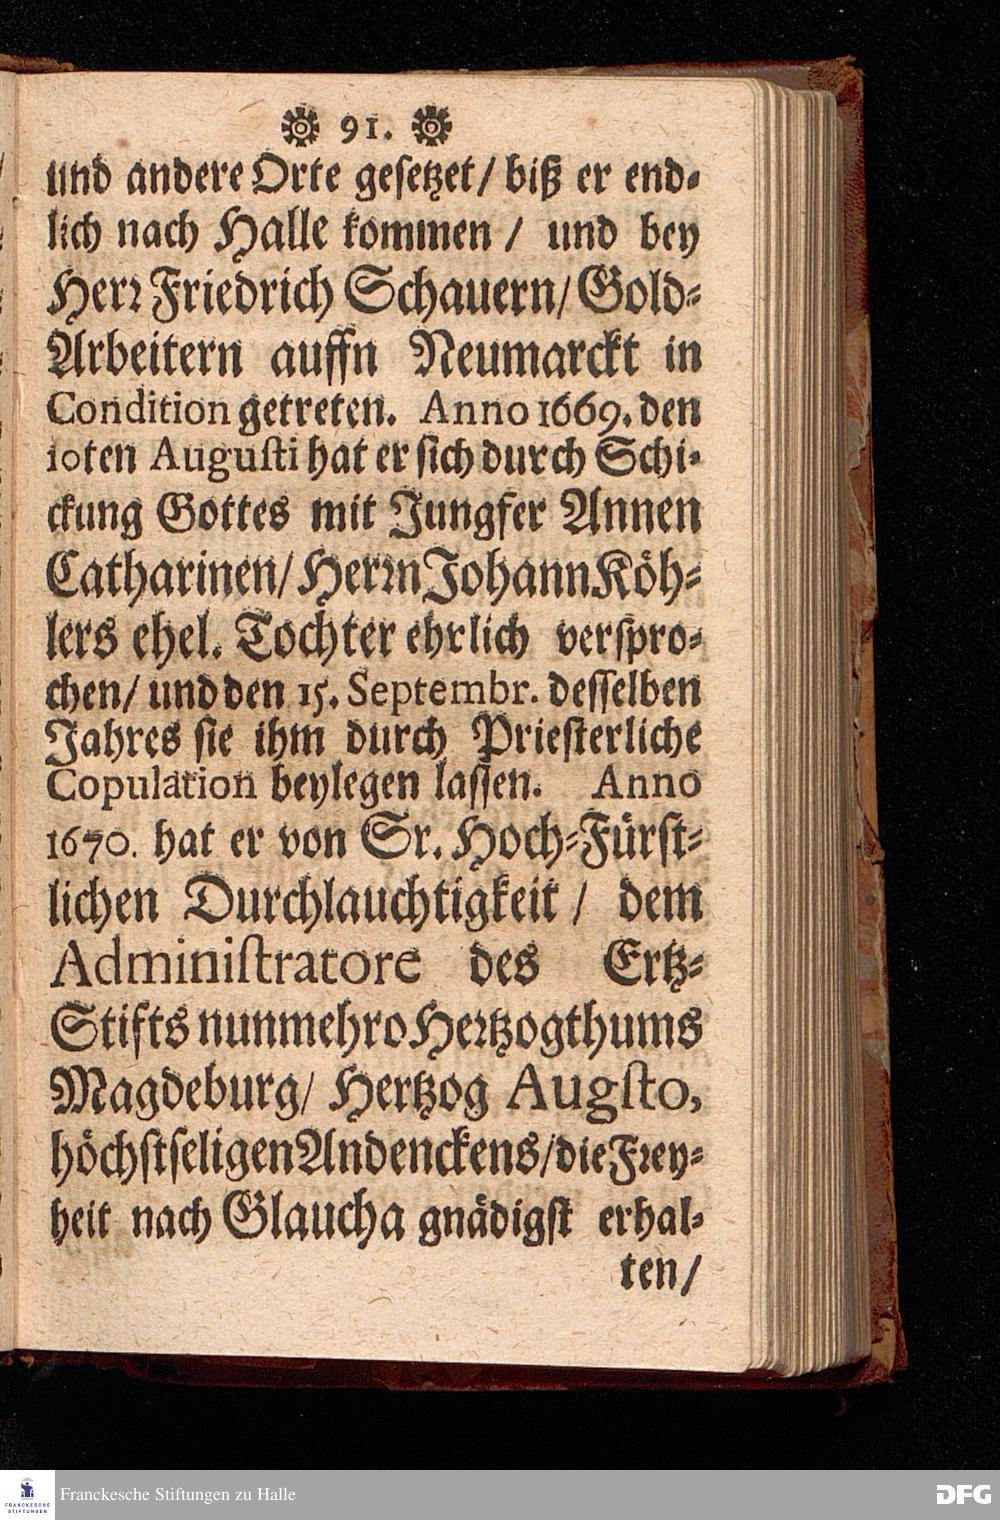 91.
und andere Orte gesetzet/ biß er end-
lich nach Halle kommen / und bey
Herr Friedrich Schauern/ Gold-
Arbeitern auffn Neumarckt in
Condition getreten. Anno 1669. den
10ten Augusti hat er sich durch Schi-
ckung Gottes mit Jungfer Annen
Catharinen/ Herrn Johann Köh-
lers ehel. Tochter ehrlich verspro-
chen/ und den 15. Septembr. desselben
Jahres sie ihm durch Priesterliche
Copulation beylegen lassen. Anno
1670. hat er von Sr. Hoch-Fürst-
lichen Durchlauchtigkeit / dem
Administratore des Ertz-
Stifts nunmehro Hertzogthums
Magdeburg/ Hertzog Augsto,
höchstseligen Andenckens/ die Frey-
heit nach Glaucha gnädigst erhal-
ten/
FRANCKESCHE
STIFTUNGEN
Franckesche Stiftungen zu Halle
DFG